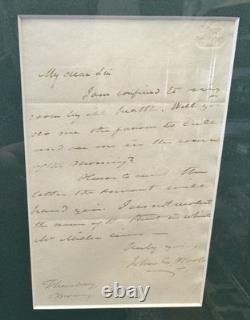 My dear Sir
I am confined to my
room by ill health. Will you
do me the favor to call
and see me in the course
of the morning?
Please to send the
letter the servant will
hand you. I do not recollect
the name of the Street in which
Mr lives —
Truly yours
John
Thursday
Morning